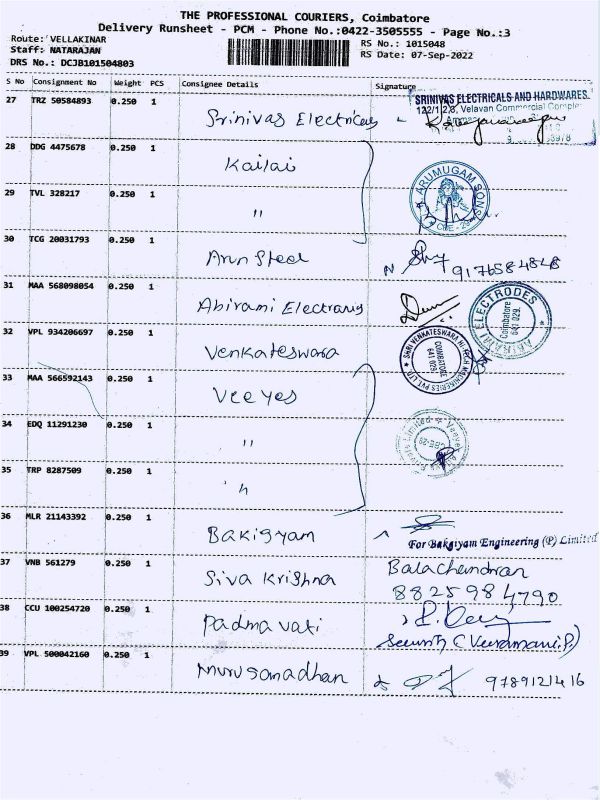 THE PROFESSIONAL COURIERS, Coimbatore
Delivery Runsheet - PCM - Phone No.:0422-3505555 - Page No.:3
Route: VELLAKINAR RS No.: 1015048
Staff: NATARAJAN RS Date: 07-Sep-2022
DRS No.: DCJB101504803
S No Consignment No Weight PCS Consignee Details Signature
27 TRZ 50584893 0.250 1 Srinivas Electricals
SRINIVAS ELECTRICALS AND HARDWARES
122/1,2,3, Velavan Commercial
28 DDG 4475678 0.250 1 Kailai
ARUMUGAM SONS
29 TVL 328217 0.250 1 "
30 TCG 20031793 0.250 1 Arun Steel 9176584848
31 MAA 568098054 0.250 1 Abirami Electrodes
ABIRAMI ELECTRODES
Coimbatore
641 029.
32 VPL 934206697 0.250 1 Venkateswara
SRI VENKATESWARA HI-TECH MACHINERIES PVT LTD
COIMBATORE
641 029.
33 MAA 566592143 0.250 1 Veeyes
34 EDQ 11291230 0.250 1 "
35 TRP 8287509 0.250 1 "
36 MLR 21143392 0.250 1 Bakigyam
For Bakgiyam Engineering (P) Limited
37 VNB 561279 0.250 1 Siva Krishna Balachandran
8825984790
38 CCU 100254720 0.250 1 Padmavati
Security C Veeramani.P)
39 VPL 500042160 0.250 1 Murugamadhan 9789121416